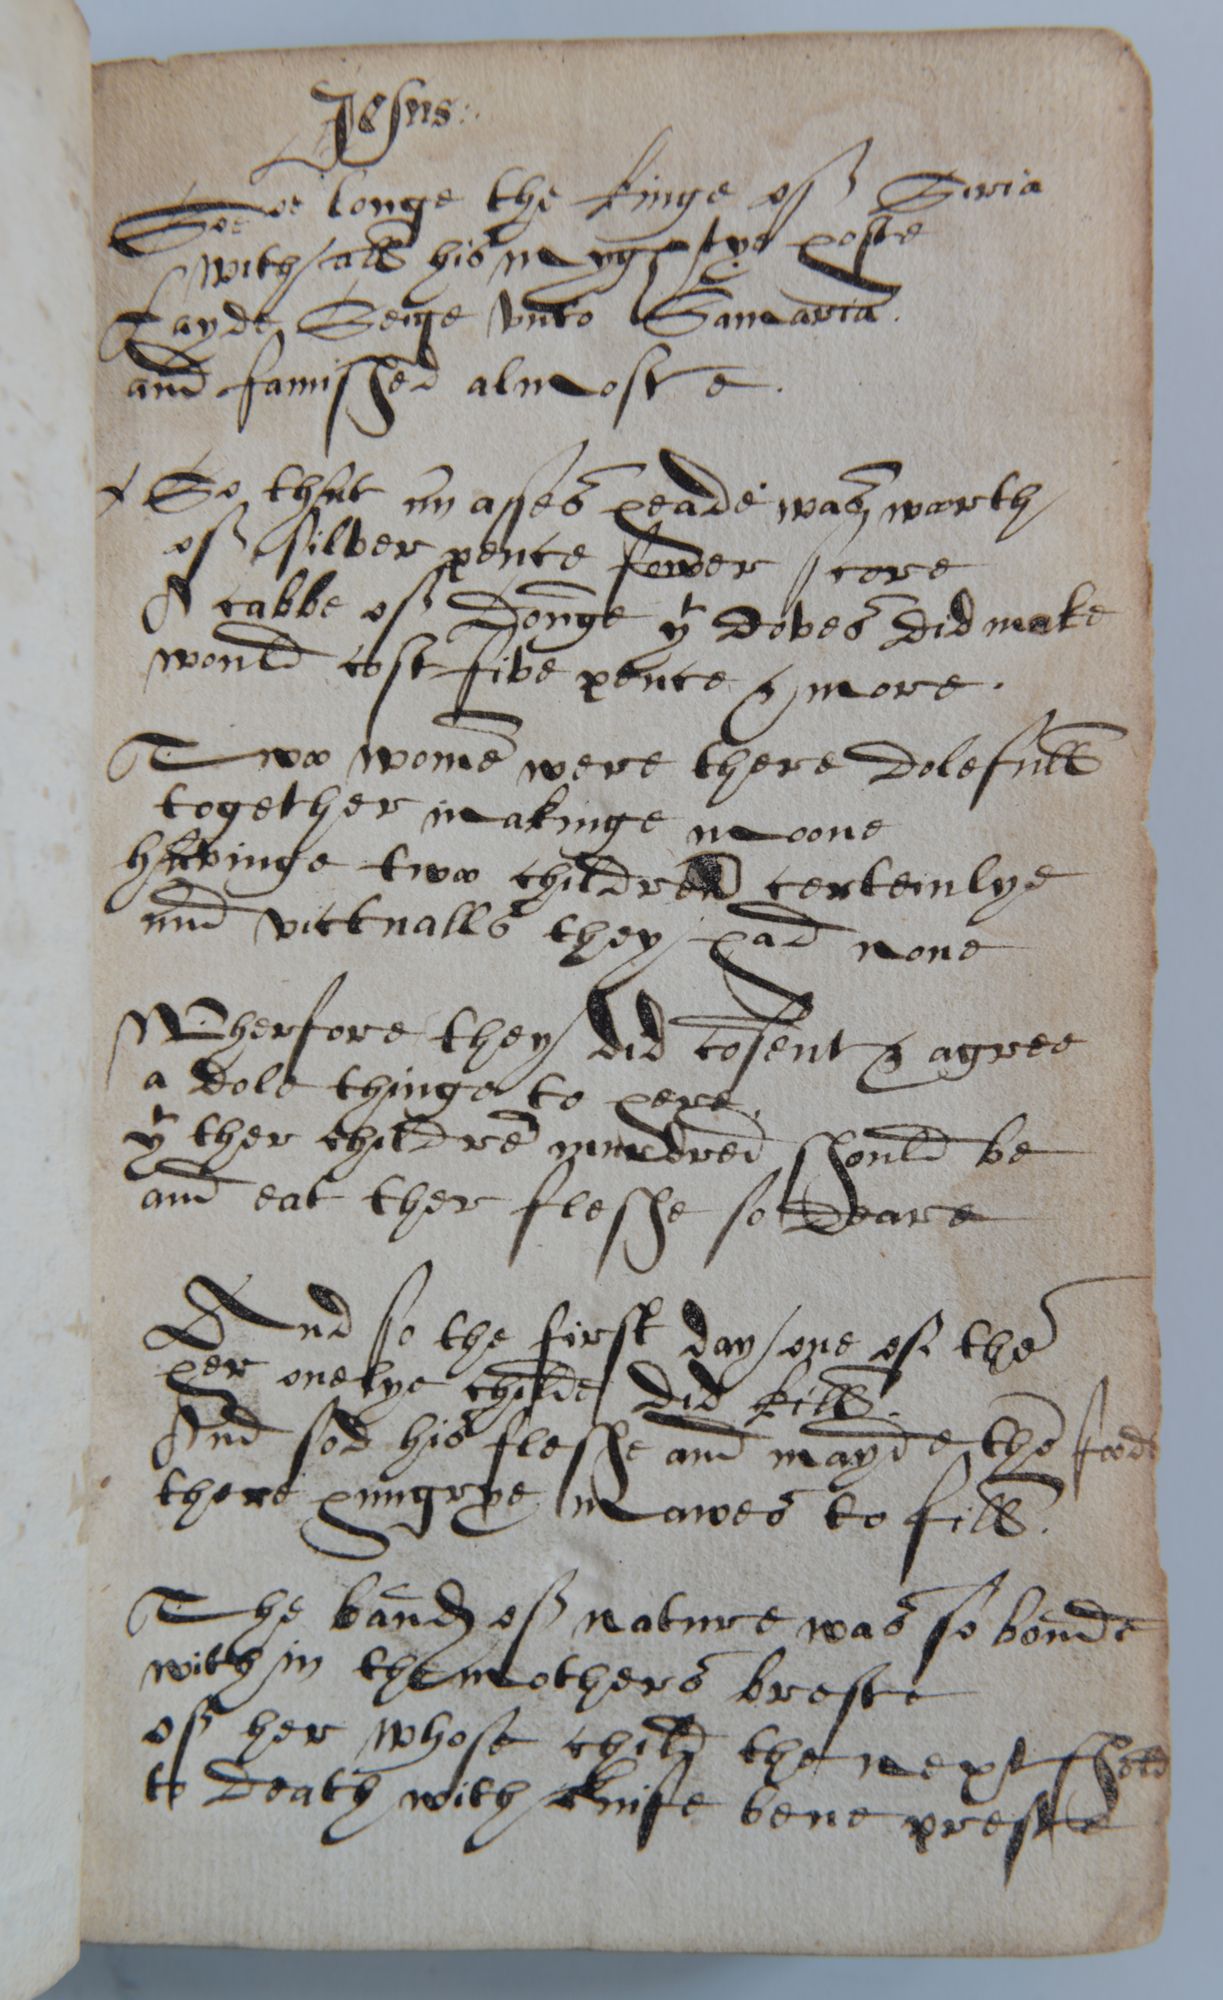 Jesus:
Soe longe the kinge off Siria
with all his myghtye hoste
Layde Seige vnto Samaria.
and famished almoste.
So that an asses heade was worth
off silver pence fower score
A cabbe off donge yt doves did make
would cost five pence & more.
Twoo womē were there dolefull
together makinge moone
havinge twoo children certeinlye
and victualls they had none
Wherfore they did cōsent & agree
a dole thinge to here.
yt ther childrē murdred should be
and eat ther fleshe so deare
And so the first day one off thē
her onelye childe did kill.
And sod his fleshe and mayde thē foode
there hungrye mawes to fill.
The band off nature was so bounde
with in the mothers breste
off her whose child the next should
to death with knife bene preste